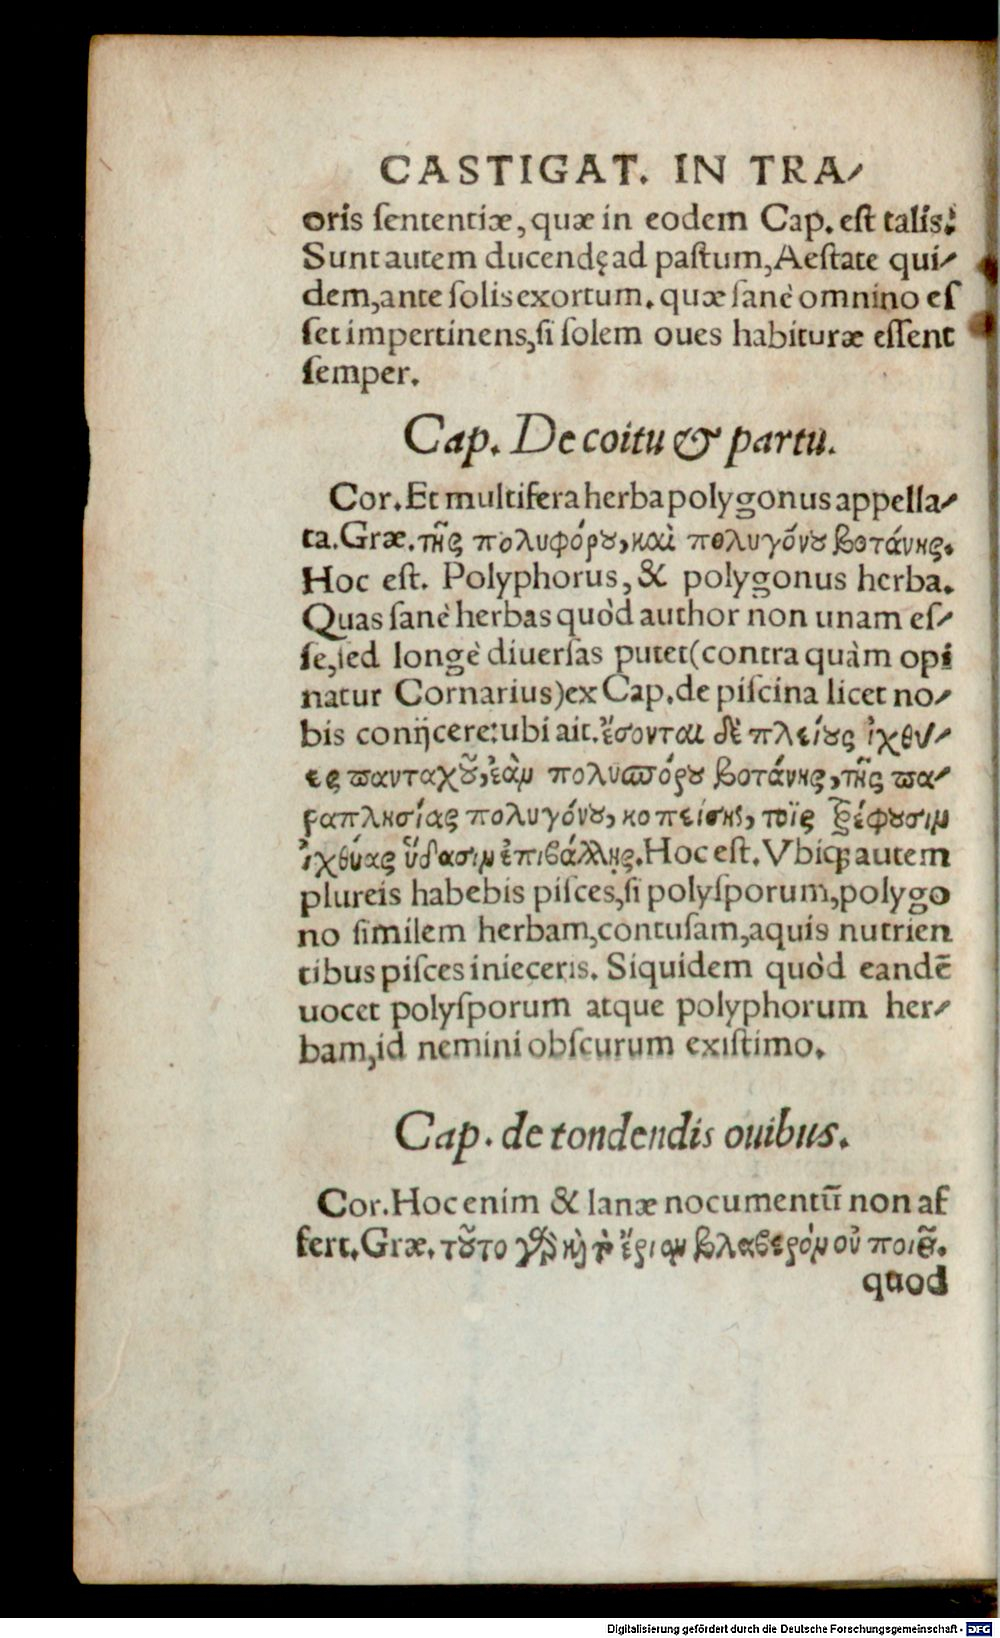 CASTIGAT. IN TRA-
oris ſententiæ, quæ in eodem Cap. eſt talis:
Sunt autem ducendę ad paſtum, Aeſtate qui-
dem, ante ſolis exortum. quæ ſanè omnino eſ
ſet impertinens, ſi ſolem oues habituræ eſſent
ſemper.
Cap. De coitu & partu.
Cor. Et multifera herba polygonus appella-
ta. Græ. τῆς πολυφόρου, καὶ πολυγόνου βοτάνης.
Hoc eſt. Polyphorus, & polygonus herba.
Quas ſanè herbas quòd author non unam eſ-
ſe, ſed longè diuerſas putet (contra quàm opi
natur Cornarius) ex Cap. de piſcina licet no-
bis conijcere: ubi ait. ἔσονται δὲ πλείους ἰχθύ-
ες πανταχοῦ, ἐὰν πολυσπόρου βοτάνης, τῆς πα-
ραπλησίας πολυγόνου, κοπείσης, τοῖς τρέφουσιν
ἰχθύας ὕδασιν ἐπιβάλλῃς. Hoc eſt. Vbicꝙ autem
plureis habebis piſces, ſi polyſporum, polygo
no ſimilem herbam, contuſam, aquis nutrien
tibus piſces inieceris. Siquidem quòd eandē
uocet polyſporum atque polyphorum her-
bam, id nemini obſcurum exiſtimo.
Cap. de tondendis ouibus.
Cor. Hoc enim & lanæ nocumentū non af
fert. Græ. τοῦτο γὰρ καὶ τὸ ἔριον βλαβερὸν οὐ ποιεῖ.
quod
Digitalisierung gefördert durch die Deutsche Forschungsgemeinschaft - DFG